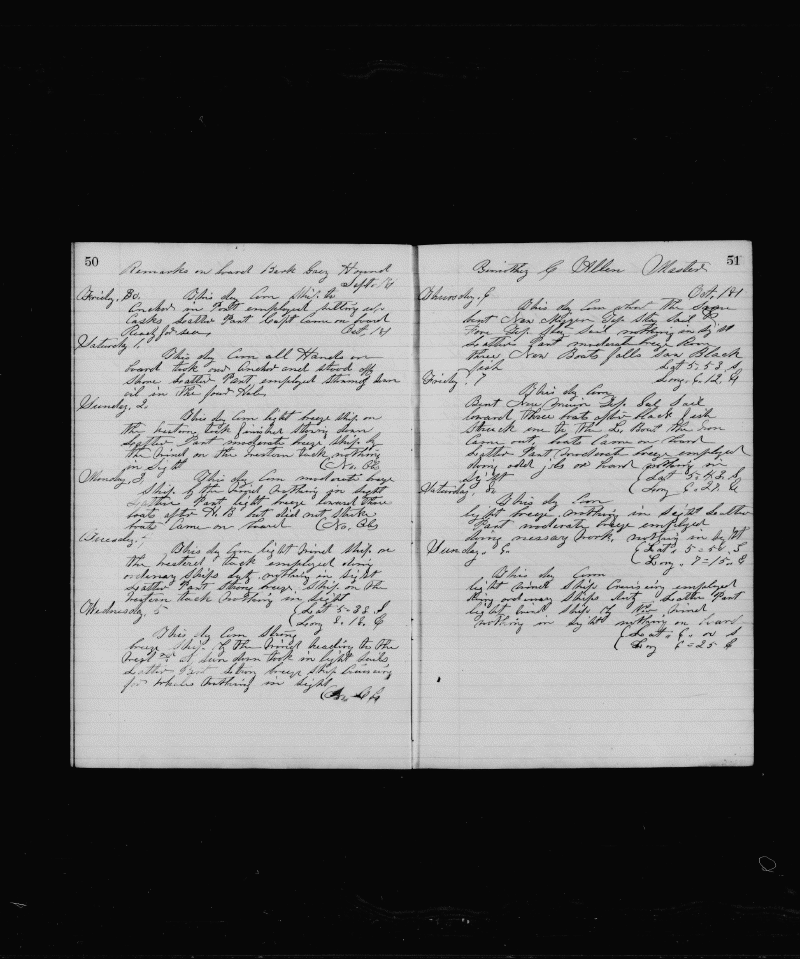 50
Remarks on board Bark Grey Hound
Sept. 18
Friday. 30. This day Com ship to
Anchor in Port employed putting
Casks Latter Part Capt Came on board
Ready for sea. Oct. 18
Saturday 1.
This day Com all Hands on
board took our Anchor and stood off
Shore Latter Part employed stowing down
oil in the four Hole.
Sunday. 2.
This day Com light breeze ship on
the western tack finished stowing down
Latter Part moderate breeze ship by
the Wind on the western tack nothing
in sight (No. Obs
Monday. 3. This day Com moderate breeze
Ship by the Wind Nothing in sight
Latter Part light breeze lowered three
boats after but did not strike
boats Came on board (No. Obs
Tuesday.
This day Com light Wind Ship on
the western tack employed doing
ordinary Ships duty nothing in sight
Latter Part strong breeze, Ship on the
western tack Nothing in sight
Wednesday. 5 (Lat 5-38 S
(Long 8.18. E
This day Com Strong
breeze Ship by the Wind heading to the
West at sun down took in light sails
Latter Part strong breeze Ship Cruising
for whales Nothing in sight
(No
51
Timothy C Allen Master
Thursday. Oct. 181
This day Com about the same
bent New Top Stay Sail
Fore Top Stay Sail nothing in sight
Latter Part moderate breeze
three New Boats falls saw Black
fish Lat 5-53 S
Friday. 7 Long. 6.12. E
This day Com
Bent New Top Sail
lowered three boats after black fish
Struck one to the the Iron
Came out, boats Came on board
Latter Part Moderate breeze employed
doing odd jobs on board nothing in
Sight (Lat 5. S
Saturday. 8. (Long 6.27. E
This day Com
light breeze, nothing in sight Latter
Part moderate breeze employed
doing nessary work, nothing in sight
Sunday. (Lat. 5=56. S
(Long. 7=15. E
This day Com
light winds Ship Cruising employed
ordinary Ships duty Latter Part
light wind ship by the Wind
nothing in sight nothing on board
(Lat. 6. S
(Long 6=25 E